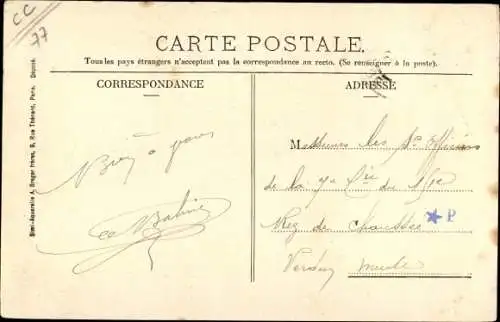 CC
77
CARTE POSTALE.
Tous les pays étrangers n'acceptent pas la correspondance au recto. (Se renseigner à la poste).
CORRESPONDANCE
ADRESSE
Simi-Aquarelle A. Breger frères, 9, Rue Thénard, Paris. Déposé.
Bien à vous
Messieurs les S. Officiers
de la 7e Cie du
Rég de Chasseurs
★ P
Verdun Meuse